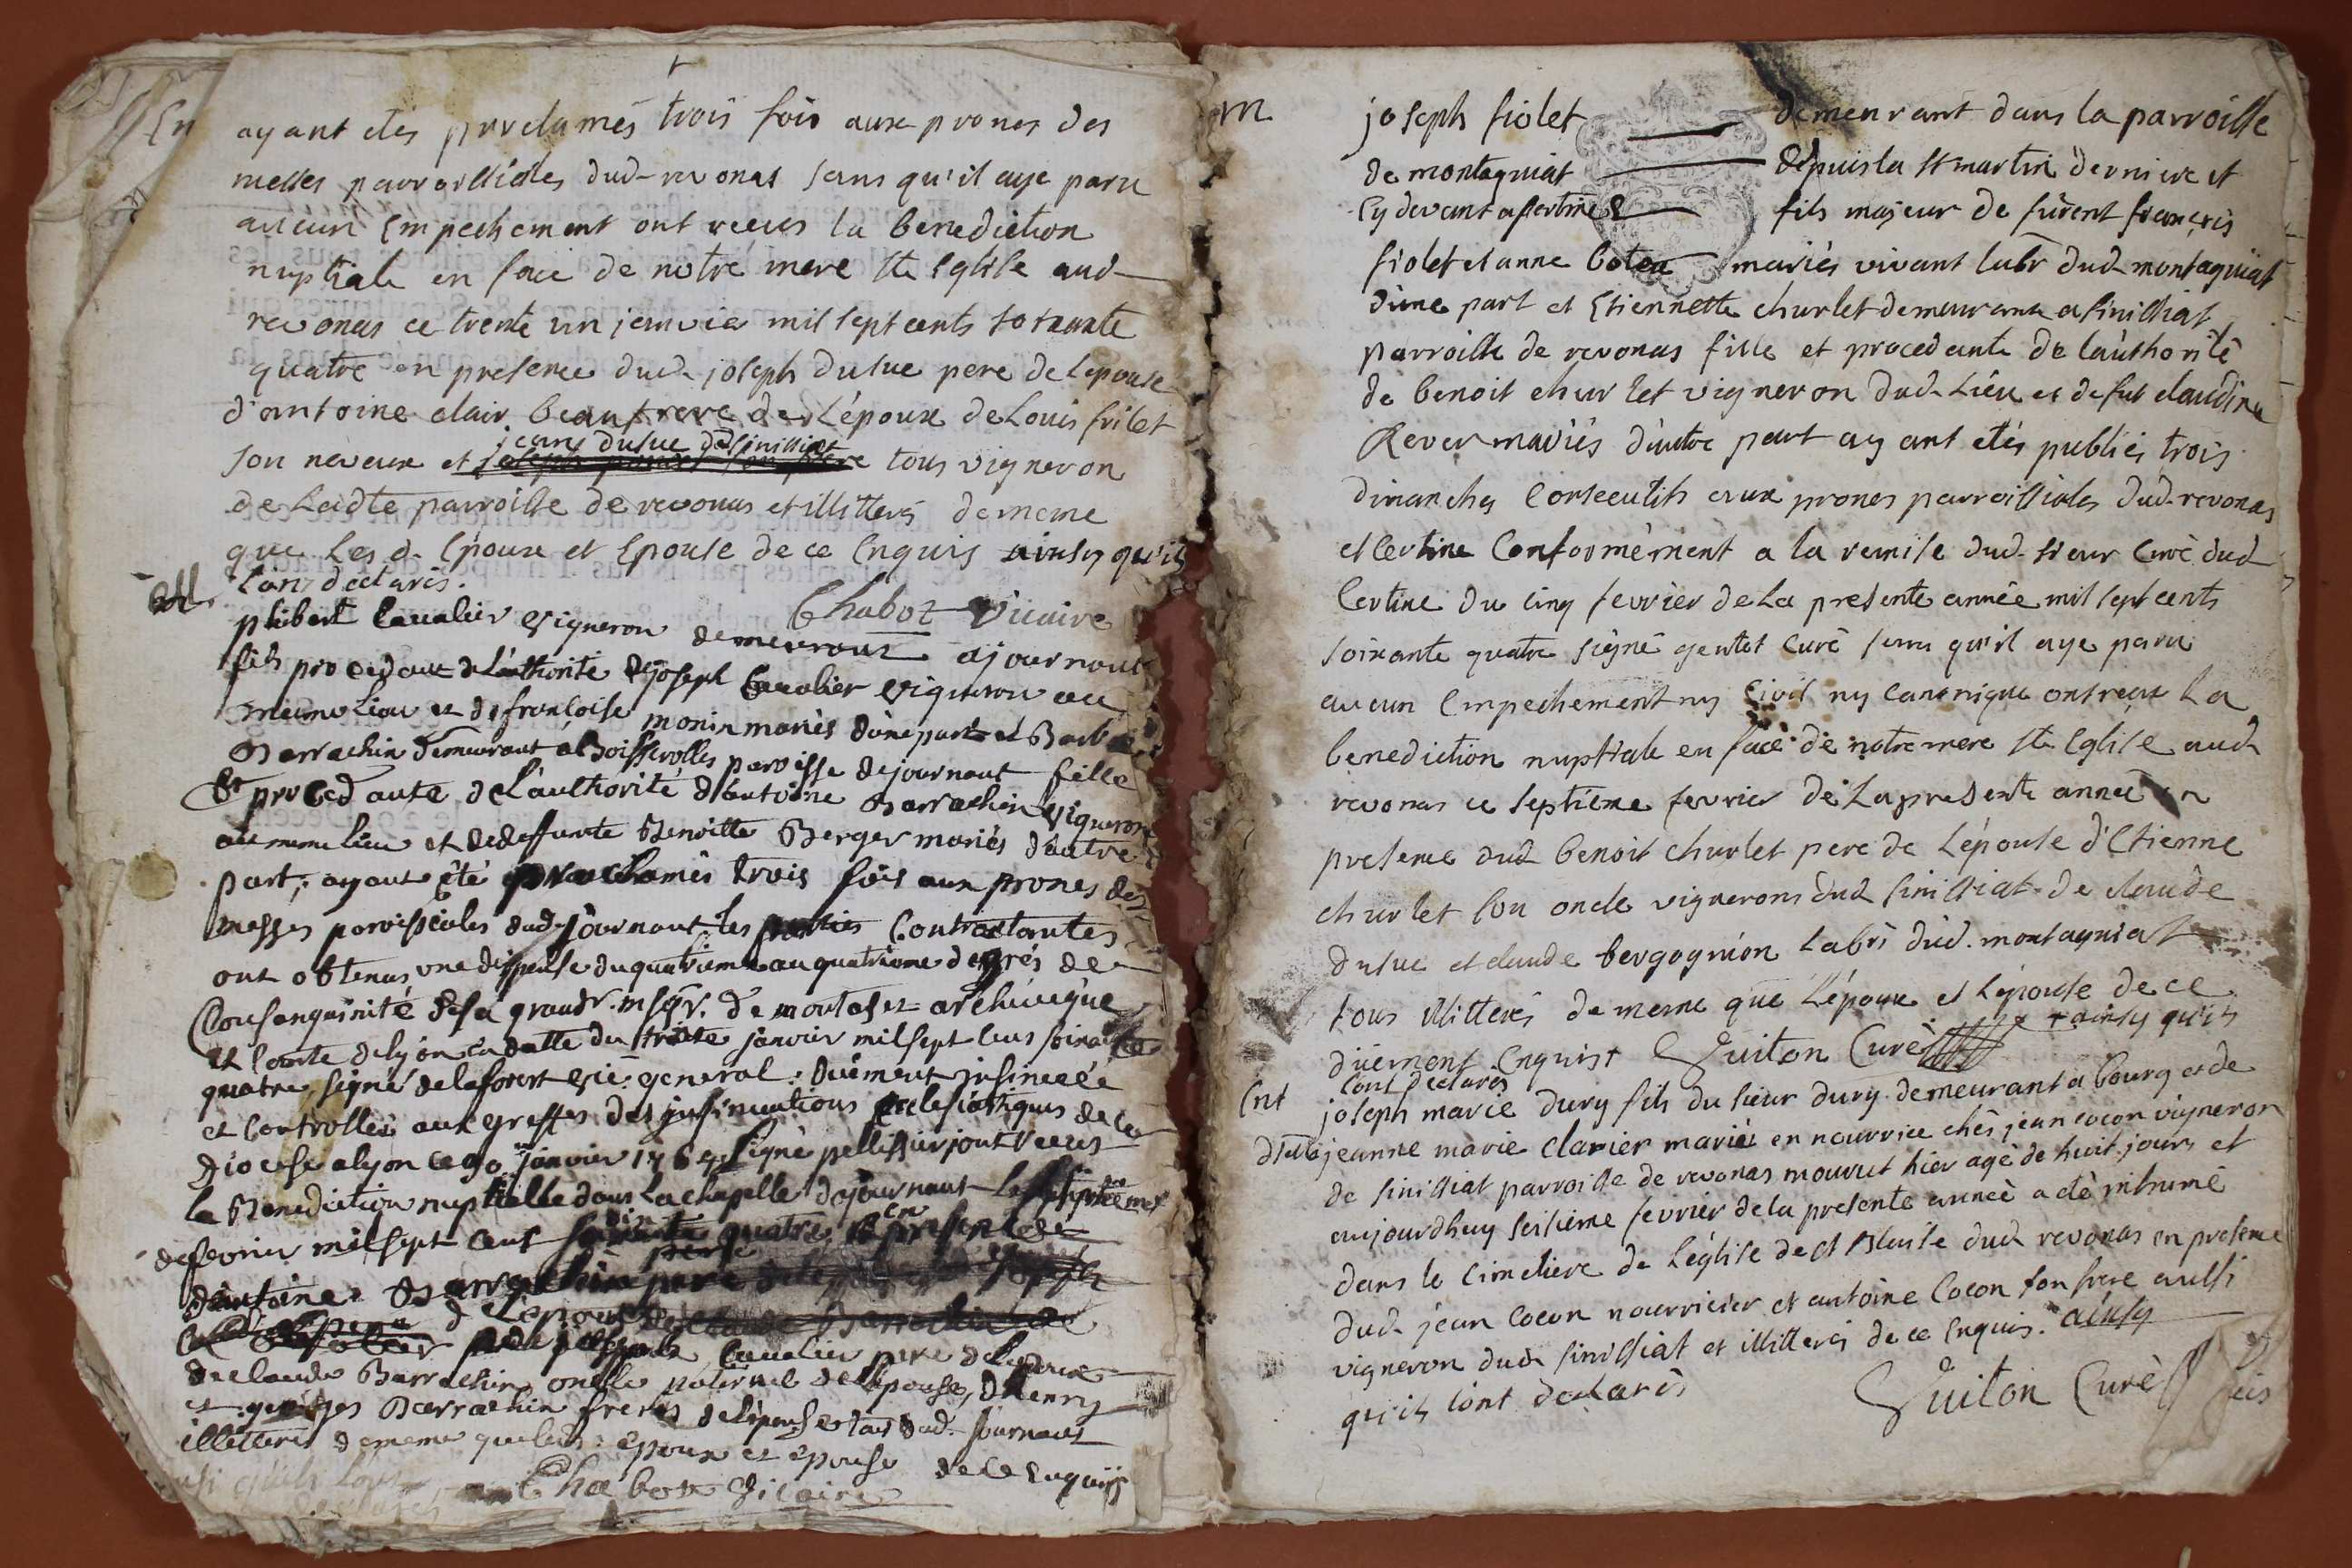 ayant etés proclamés trois fois aux prones des
messes parroissiales dud revonas sans qu'il aye paru
aucun Empechement ont recus la benediction
nuptiale en face de notre mere ste Eglise aud
revonas ce trente un janvier mil sept cents soixante
quatre en presence dud joseph dusuc pere de lepouse
d'antoine clair beaufrere de L'époux de Louis frilet
son neveux et jean dusuc de sinissiat tous vigneron
de Ladte parroisse de revonas et illitterés de meme
que Les d. Epoux et Epouse de ce Enquis ainsy qu'ils
l'ont declarés.
Chaboz Vicaire
M.
philibert Cavalier vigneron demeurant a journant
fils procedant de l'authorité de joseph Cavalier vigneron au
meme Lieu et de francoise monin mariés d'une part et Barbe
Barrachin demeurant à Boisserolles paroisse de journant fille
Et procedante de L'authorité d'antoine Barrachin vigneron
au meme lieu et de deffunte Benoitte Berger mariés d'autre
part; ayant été proclamés trois fois aux prones des
messes paroissiales dud journant les parties Contractantes
ont obtenus une dispense du quatrieme au quatrieme degrés de
Consanguinité de sa grandr. msgr. de montaset archeveque
et Comte de lyon en datte du trente janvier mil sept cens soixante
quatre, signé delaforest vic. general: duement insinuée
et Controllée aux greffes des insinuations ecclesiastiques de ce
diocese a lyon ce 30 janvier 1764 signé pellissier, ont recus
la Benediction nuptialle dans La chapelle de journant Le septieme
de fevrier mil sept cent soixante quatre, en presence
d'antoine Barrachin pere
de L'epouse
de joseph Cavalier pere de L'epoux
de claude Barrachin oncle paternel de L'epouse, d'henry
et georges Barrachin freres de l'epouse tous dud. journant
illitterés de meme que lesd: epoux et épouse de ce enquis
ainsi qu'ils l'ont declarés
Chaboz Vicaire
m
joseph fiolet demeurant dans la parroisse
de montagniat depuis la st martin derniere et
cy devant a sertine fils majeur de furent françois
fiolet et anne boton mariés vivant labr dud montagniat
d'une part et Etiennette churlet demeurante a sinissiat
parroisse de revonas fille et procedante de l'authorité
de benoit churlet vigneron dud Lieu et de fut claudine
Rever mariés d'autre part ayant etés publiés trois
dimanches Consecutifs aux prones parroissiales dud revonas
et Certine Conformèment a la remise dud sieur Curè dud
Certine du cinq fevrier de La presente année mil sept cents
soixante quatre signé gentet curé sans qu'il aye paru
aucun Empechement ny Civil ny canonique ont recux La
benediction nuptiale en face de notre mere ste Eglise aud
revonas ce septieme fevrier de La presente année en
presence dud benoit churlet pere de L'épouse d'Etienne
churlet son oncle vignerons dud sinissiat de claude
dusuc et claude bergognion labrs dud. montagniat
tous illitterés de meme que L'époux et l'épouse de ce
duement Enquist + ainsy qu'ils
l'ont declarés Guiton Curè
Ent
joseph marie dury fils du sieur dury demeurant a bourg et de
jeanne marie clarier mariés en nourrice chés jean cocon vigneron
de sinissiat parroisse de revonas mourut hier agé de huit jours et
aujourdhuy seisieme fevrier de la presente année a eté inhumé
dans le cimetiere de L'église de st Blaise dud revonas en presence
dud jean cocon nourricier et antoine Cocon son frere aussi
vigneron dud sinissiat et illitterés de ce Enquis. ainsy
qu'ils l'ont declarés
Guiton Curè